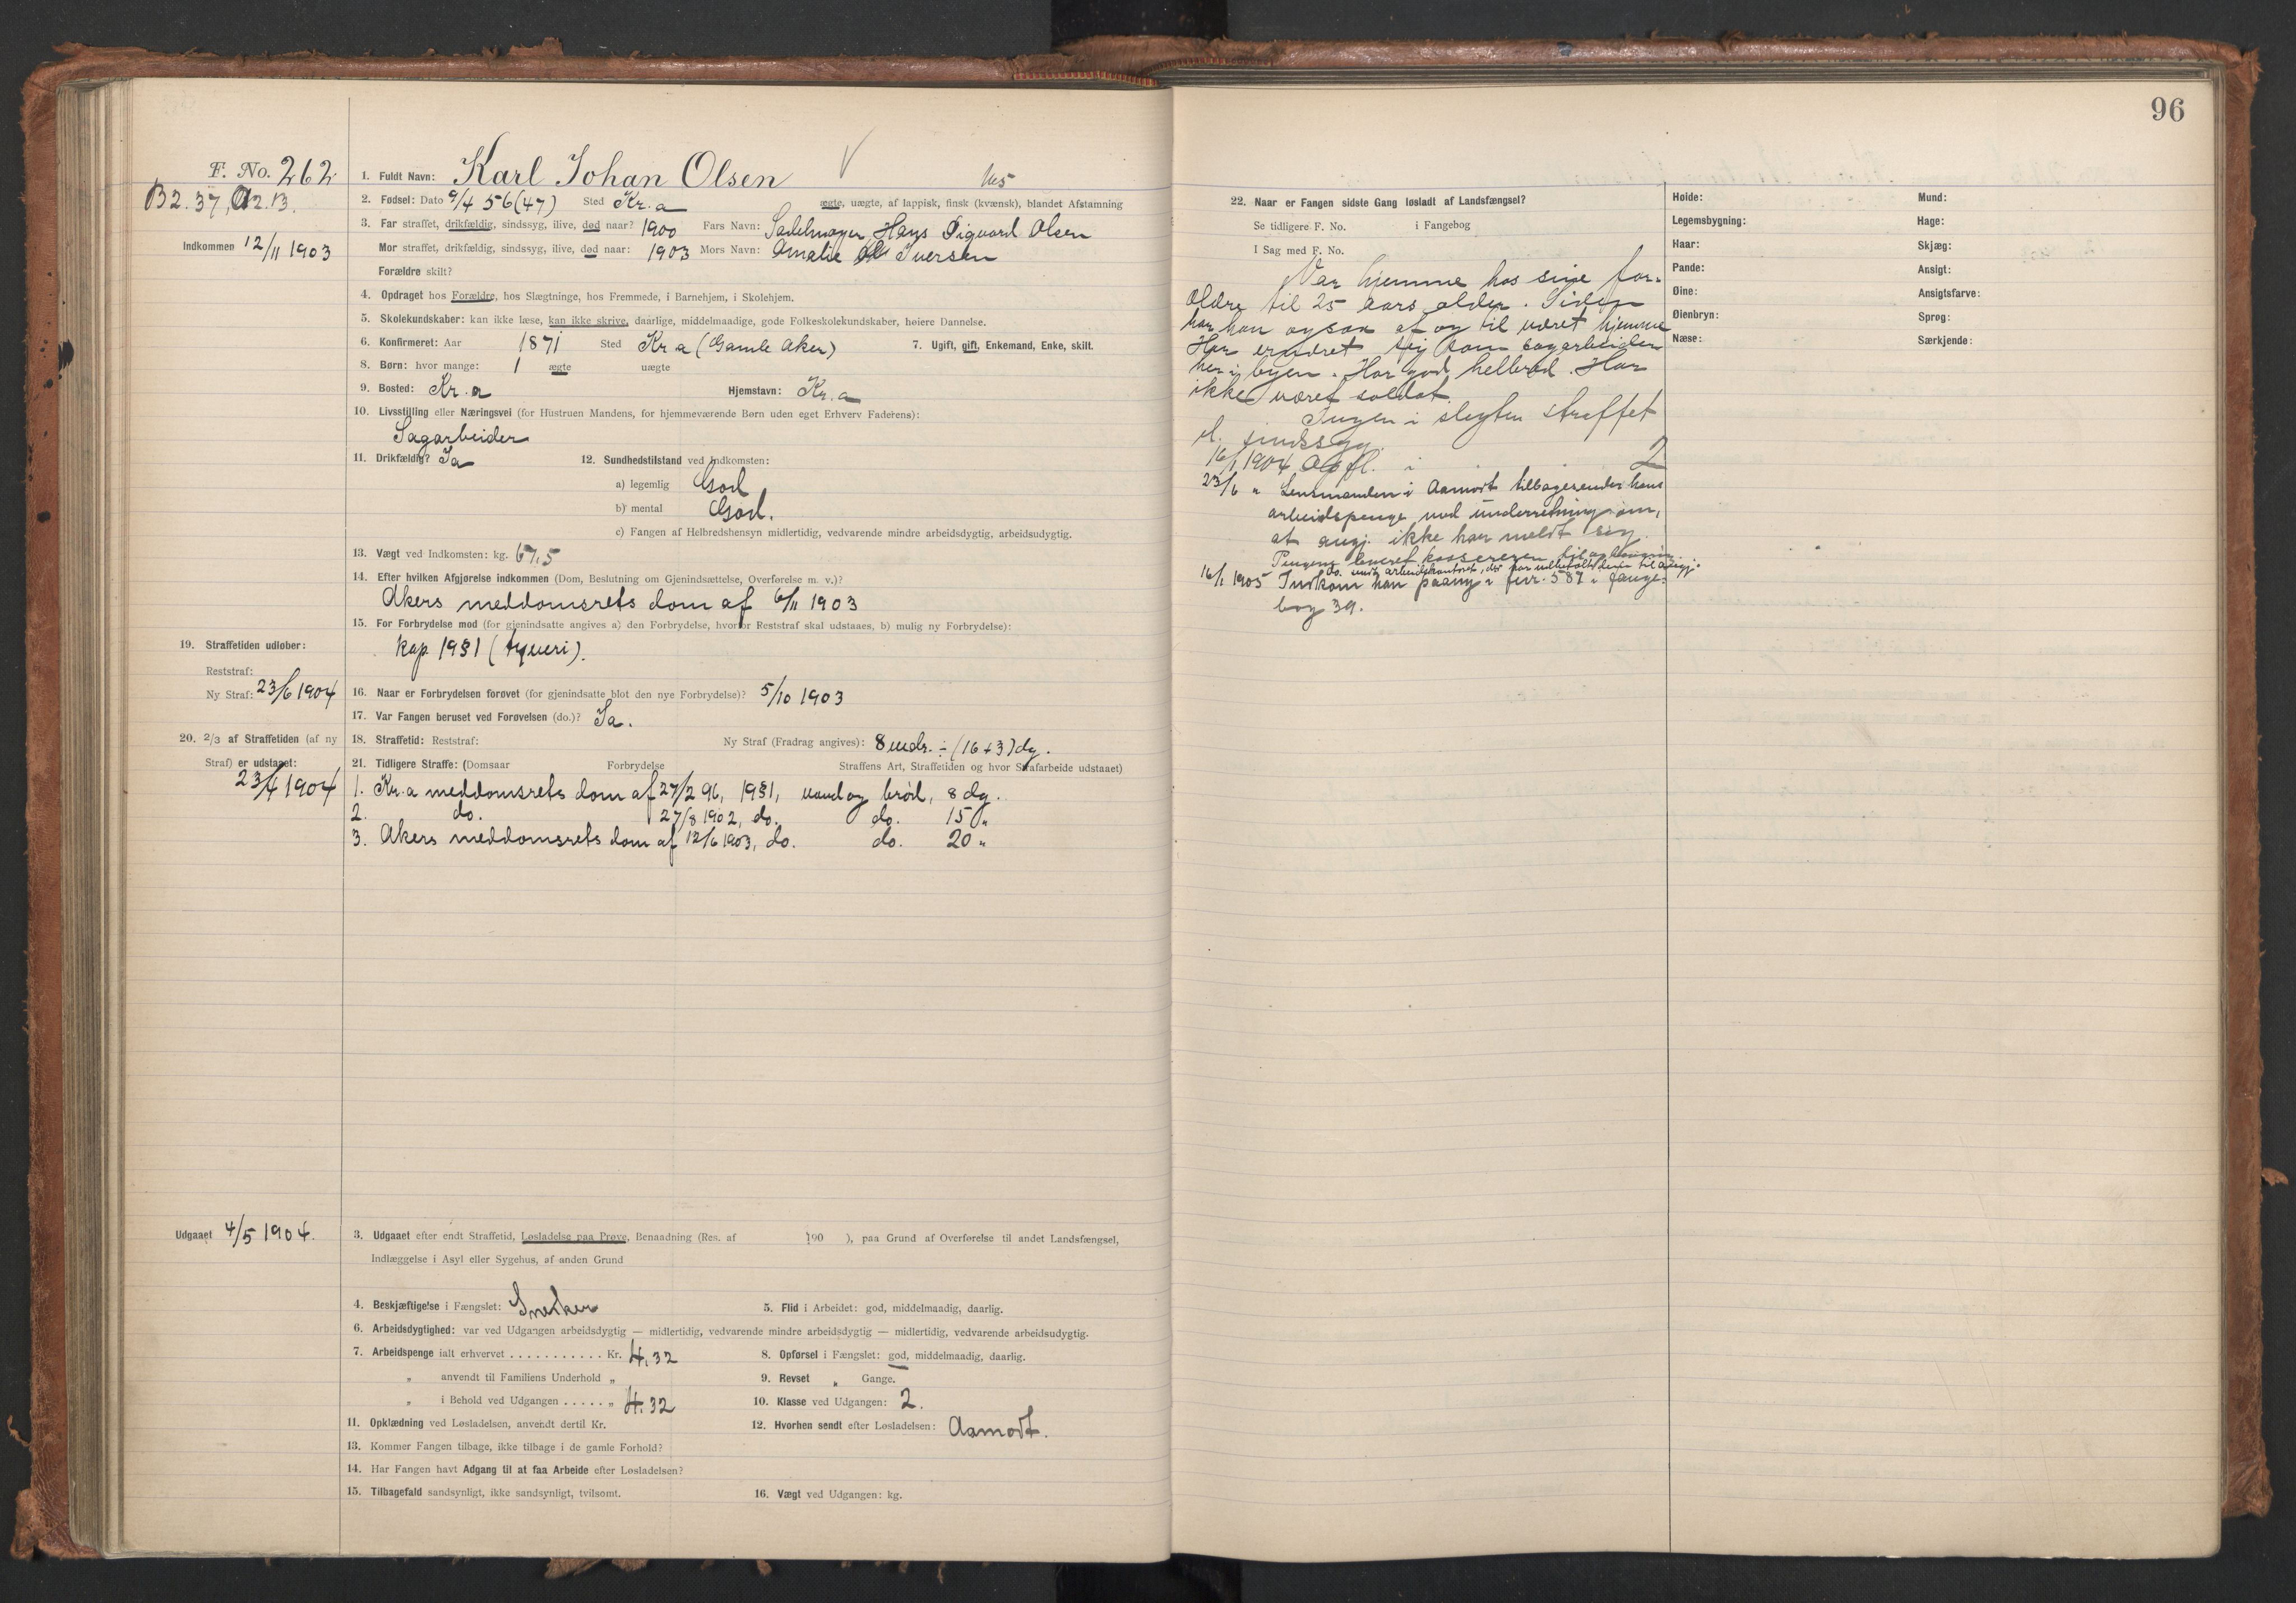 96
F. No. 262
B2.37, A2.B.
Indkommen 12/11 1903
1. Fuldt Navn: Karl Johan Olsen V
2. Fødsel: Dato 9/4 56 (47) Sted Kr.a ægte, uægte, af lappisk, finsk (kvænsk), blandet Afstamning
3. Far straffet, drikfældig, sindssyg, ilive, død naar? 1900 Fars Navn: Sadelmager Hans Sigvard Olsen
Mor straffet, drikfældig, sindssyg, ilive, død naar: 1903 Mors Navn: Amalie Iversen
Forældre skilt?
4. Opdraget hos Forældre, hos Slægtninge, hos Fremmede, i Barnehjem, i Skolehjem.
5. Skolekundskaber: kan ikke læse, kan ikke skrive, daarlige, middelmaadige, gode Folkeskolekundskaber, høiere Dannelse.
6. Konfirmeret: Aar 1871 Sted Kr a (Gamle Aker) 7. Ugift, gift, Enkemand, Enke, skilt.
8. Børn: hvor mange: 1 ægte uægte
9. Bosted: Kr.a Hjemstavn: Kr.a
10. Livsstilling eller Næringsvei (for Hustruen Mandens, for hjemmeværende Børn uden eget Erhverv Faderens):
Sagarbeider
11. Drikfældig? Ja 12. Sundhedstilstand ved Indkomsten:
a) legemlig God
b) mental God.
c) Fangen af Helbredshensyn midlertidig, vedvarende mindre arbeidsdygtig, arbeidsudygtig.
13. Vægt ved Indkomsten: kg. 67,5
14. Efter hvilken Afgjørelse indkommen (Dom, Beslutning om Gjenindsættelse, Overførelse m. v.)?
Akers meddomsrets dom af 6/11 1903
15. For Forbrydelse mod (for gjenindsatte angives a) den Forbrydelse, hvorfor Reststraf skal udstaaes, b) mulig ny Forbrydelse):
kap 19§1 (tyveri).
19. Straffetiden udløber:
Reststraf:
Ny Straf: 23/6 1904
16. Naar er Forbrydelsen forøvet (for gjenindsatte blot den nye Forbrydelse)? 5/10 1903
17. Var Fangen beruset ved Forøvelsen (do.)? Ja.
20. 2/3 af Straffetiden (af ny
Straf) er udstaaet:
23/4 1904
18. Straffetid: Reststraf: Ny Straf (Fradrag angives): 8 mdr. ÷ (16+3) dg.
21. Tidligere Straffe: (Domsaar Forbrydelse Straffens Art, Straffetiden og hvor Strafarbeide udstaaet)
1. Kr.a meddomsrets dom af 27/2 96, 19§1, vand og brød, 8 dg.
2. do. 27/8 1902, do. do. 15 "
3. Akers meddomsrets dom af 12/6 1903, do. do. 20 "
Udgaaet 4/5 1904.
3. Udgaaet efter endt Straffetid, Løsladelse paa Prøve, Benaadning (Res. af 190 ), paa Grund af Overførelse til andet Landsfængsel,
Indlæggelse i Asyl eller Sygehus, af anden Grund
4. Beskjæftigelse i Fængslet: Snedker 5. Flid i Arbeidet: god, middelmaadig, daarlig.
6. Arbeidsdygtighed: var ved Udgangen arbeidsdygtig — midlertidig, vedvarende mindre arbeidsdygtig — midlertidig, vedvarende arbeidsudygtig.
7. Arbeidspenge ialt erhvervet . . . . . . . . . . . Kr. 4.32 8. Opførsel i Fængslet: god, middelmaadig, daarlig.
„ anvendt til Familiens Underhold „ 9. Revset „ Gange.
„ i Behold ved Udgangen . . . . . „ 4.32 10. Klasse ved Udgangen: 2.
11. Opklædning ved Løsladelsen, anvendt dertil Kr. 12. Hvorhen sendt efter Løsladelsen: Aamodt.
13. Kommer Fangen tilbage, ikke tilbage i de gamle Forhold?
14. Har Fangen havt Adgang til at faa Arbeide efter Løsladelsen?
15. Tilbagefald sandsynligt, ikke sandsynligt, tvilsomt. 16. Vægt ved Udgangen: kg.
22. Naar er Fangen sidste Gang løsladt af Landsfængsel?
Se tidligere F. No. i Fangebog
I Sag med F. No.
Var hjemme hos sine for-
ældre til 25 aars alder. Siden
har han ogsaa af og til været hjemme
Har ernæret sig som sagarbeider
her i byen. Har god helbred. Har
ikke været soldat.
Ingen i slegten straffet
el. sindssyg.
16/1 1904 Opfl. i 2
23/6 " Lensmanden i Aamodt tilbagesender hans
arbeidspenge med underretning om,
at angj. ikke har meldt sig.
Pengene leveret kassereren
do. sendt arbeidskontoret, der har udbetalt dem til angj.
16/1 1905 Indkom han paany i fnr. 587 i fange-
bog 39.
Høide: Mund:
Legemsbygning: Hage:
Haar: Skjæg:
Pande: Ansigt:
Øine: Ansigtsfarve:
Øienbryn: Sprog:
Næse: Særkjende: